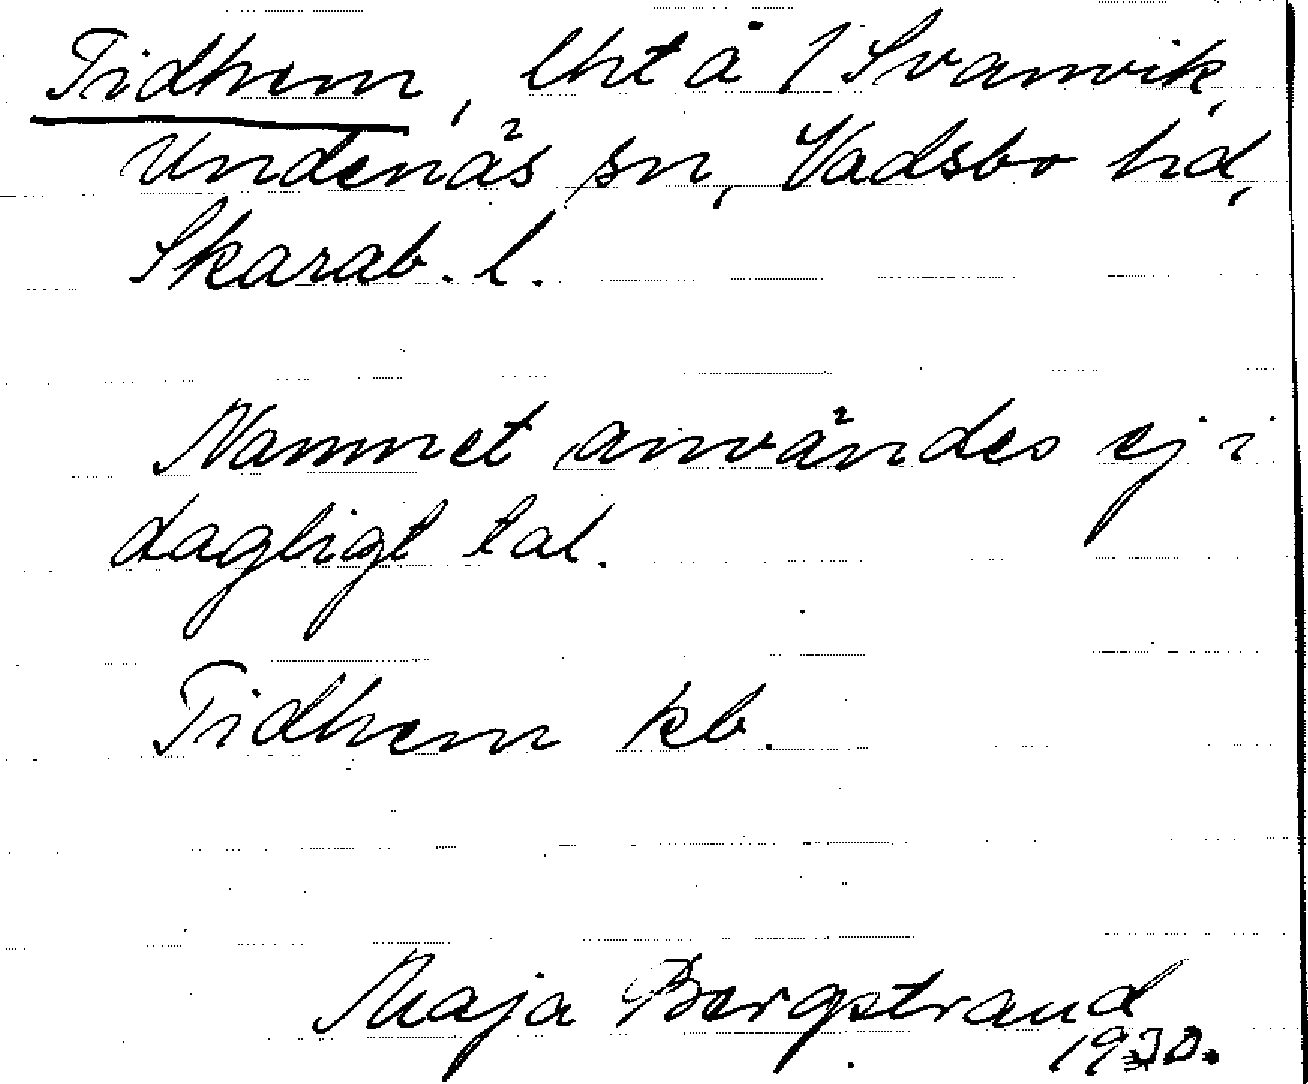 Tidhem, lht å 1 Svanvik,
Undenäs sn, Vadsbo hd,
Skarab. l.
Namnet användes ej i
dagligt tal.
Tidhem kb.
Maja Bergstrand
1930.